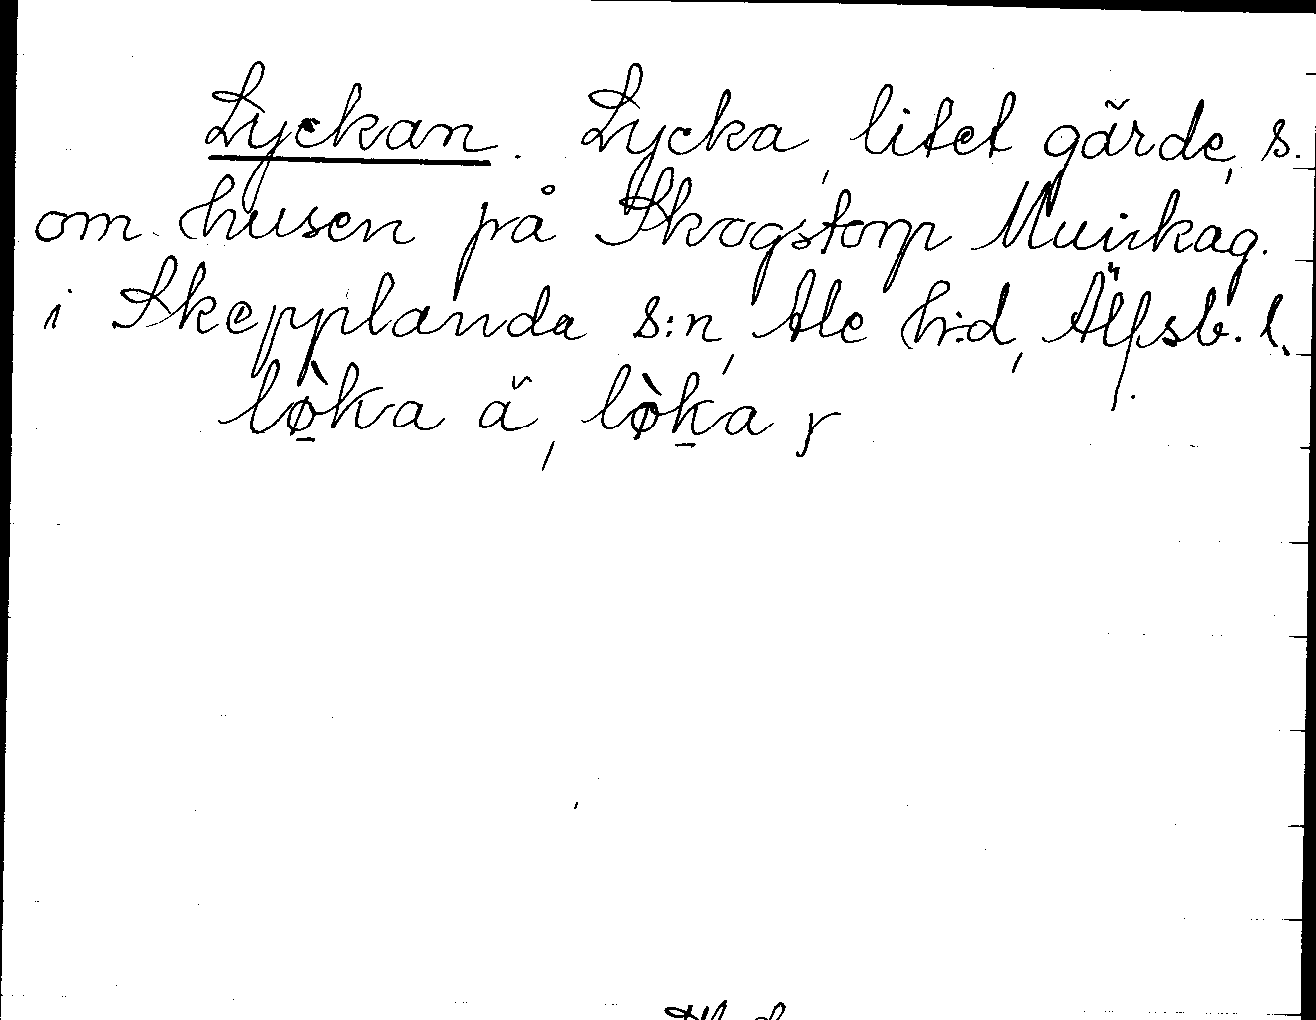 Lyckan. Lycka, litet gärde, s.
om husen på Skogstorp Munkag.
i Skepplanda s:n, Ale h:d, Älfsb. l.
lø̱̀ka ä, lø̀ḵa r